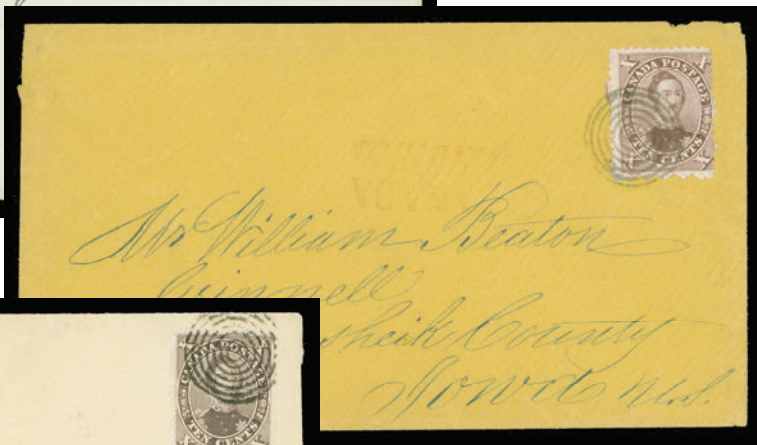 X CANADA POSTAGE X
X TEN CENTS X
Mr William Beaton
Grinnell
sheik County
Iowa U.S.
X CANADA POSTAGE X
TEN CENTS